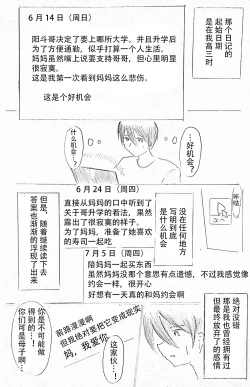 那个日记的
起始日期
是在我高三时
6月14日（周日）
阳斗哥决定了要上哪所大学，并且升学后
为了方便通勤，似乎打算一个人生活。
妈妈虽然嘴上说要支持哥哥，但心里明显
很寂寞。
这是我第一次看到妈妈这么悲伤。
这是个好机会
…好机会？
什么机会？
6月24日（周四）
直接从妈妈的口中听到了
关于哥升学的看法，果然
露出了很寂寞的样子。
为了妈妈，准备了她喜欢
的寿司一起吃
没在任何地方
写明到底
是什么机会
咔哒
但是，随着继续读下去
答案也渐渐的浮现了出来
7月5日（周四）
陪妈妈一起买东西
虽然妈妈没那个意思有点遗憾，不过我感觉像
约会一样，很开心
好想有一天真的和妈约会啊
绝对没错
那是我也曾经拥有过
但最终放弃了的感情
前路漫漫啊
但我绝对要把它变成现实
妈，我爱你
这家伙…！
你是不可能做
得到的…！
你们可是母子啊…！